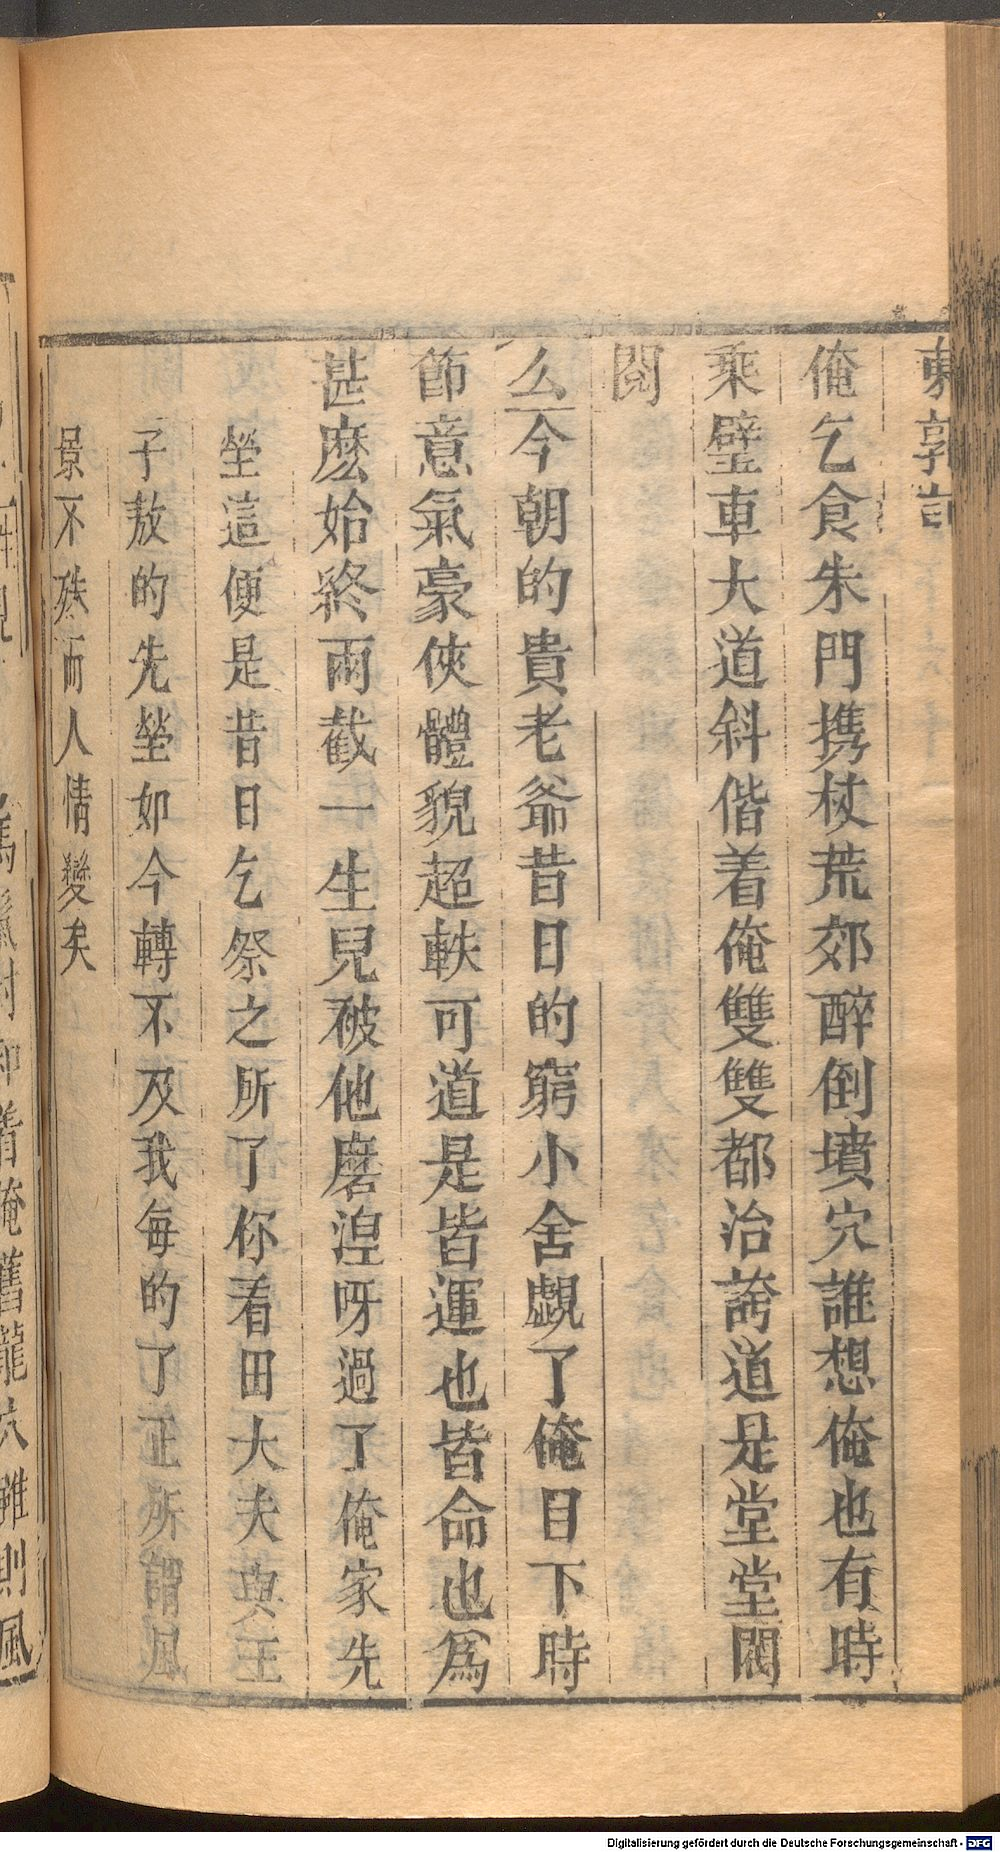 東郭記
俺乞食朱門携杖荒郊醉倒墳穴誰想俺也有時
乘壁車大道斜偕着俺雙雙都冶誇道是堂堂閥
閱
么今朝的貴老爺昔日的窮小舍覷了俺目下時
節意氣豪俠體貌超軼可道是皆運也皆命也爲
甚麽始終兩截一生兒被他磨涅呀過了俺家先
塋這便是昔日乞祭之所了你看田大夫與王
子敖的先塋如今轉不及我每的了正所謂風
景不殊而人情變矣
Digitalisierung gefördert durch die Deutsche Forschungsgemeinschaft - DFG